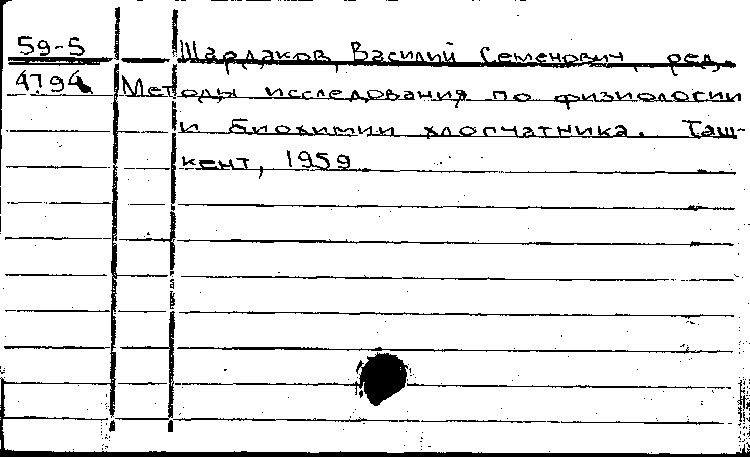 59-5 Шардаков, Василий Семенович, ред.
4794 Методы исследования по физиологии
и биохимии хлопчатника. Таш-
кент, 1959